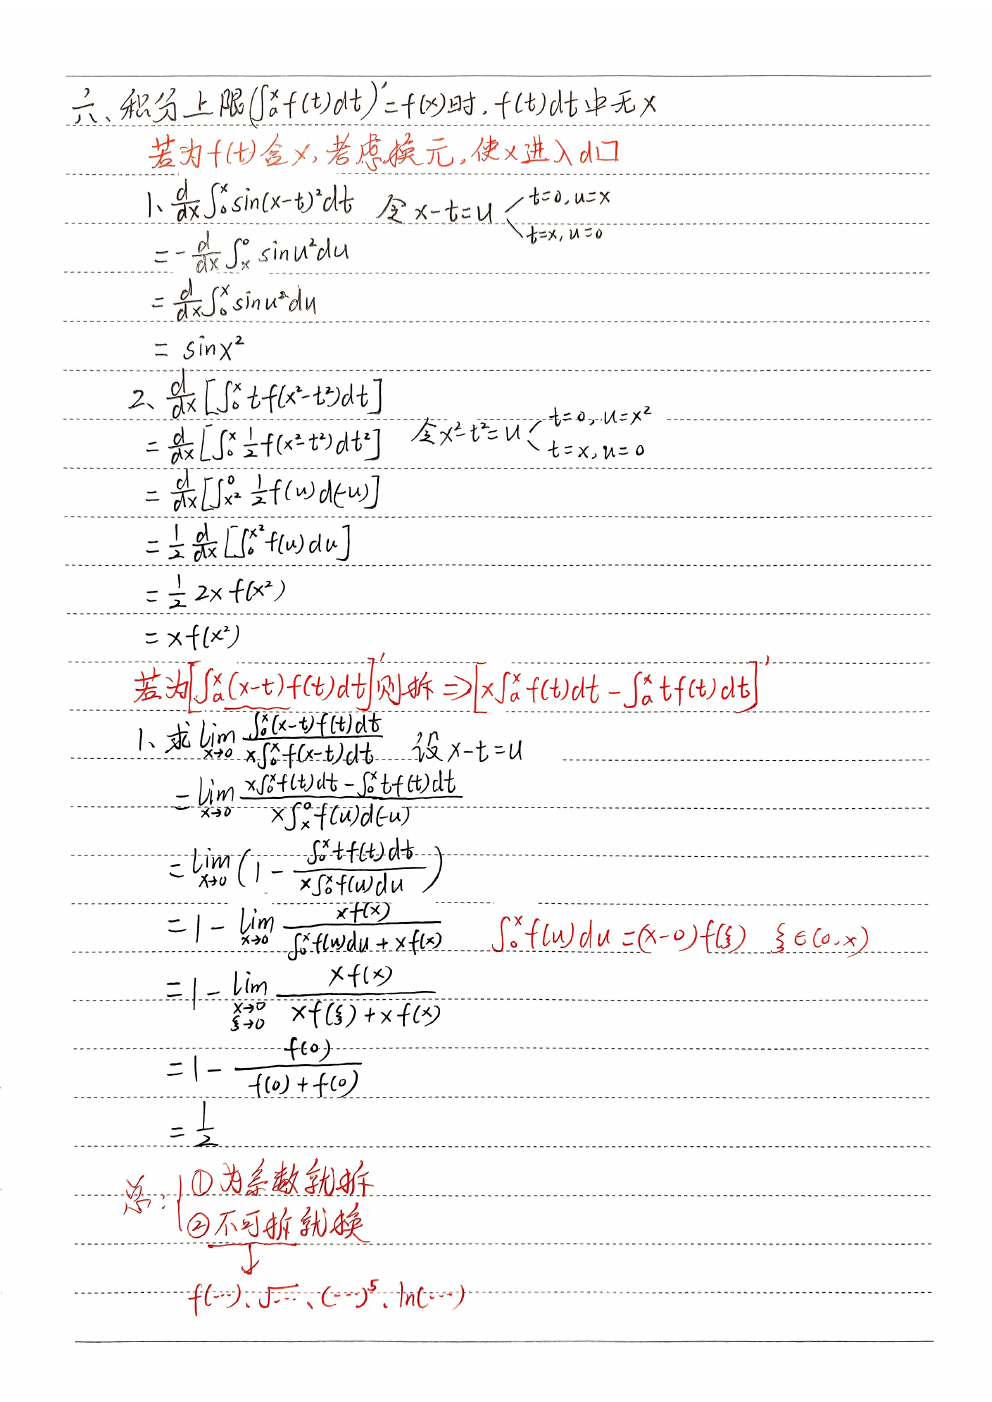 六、积分上限(∫ₐˣf(t)dt)'=f(x)时，f(t)dt中无x
若为f(t)含x，考虑换元，使x进入d口
1、d/dx∫₀ˣsin(x-t)²dt 令x-t=u t=0，u=x
t=x，u=0
=-d/dx∫ₓ⁰sinu²du
=d/dx∫₀ˣsinu²du
=sinx²
2、d/dx[∫₀ˣtf(x²-t²)dt]
=d/dx[∫₀ˣ1/2f(x²-t²)dt²] 令x²-t²=u t=0，u=x²
t=x，u=0
=d/dx[∫_{x²}^{0}1/2f(u)d(-u)]
=1/2 d/dx[∫_{0}^{x²}f(u)du]
=1/2 2xf(x²)
=xf(x²)
若为[∫ₐˣ(x-t)f(t)dt]'则拆⇒[x∫ₐˣf(t)dt-∫ₐˣtf(t)dt]'
1、求lim_{x→0} ∫₀ˣ(x-t)f(t)dt / x∫₀ˣf(x-t)dt 设x-t=u
=lim_{x→0} x∫₀ˣf(t)dt-∫₀ˣtf(t)dt / x∫ₓ⁰f(u)d(-u)
=lim_{x→0}(1-∫₀ˣtf(t)dt / x∫₀ˣf(u)du)
=1-lim_{x→0} xf(x) / ∫₀ˣf(u)du+xf(x) ∫₀ˣf(u)du=(x-0)f(ξ) ξ∈(0,x)
=1-lim_{x→0 ξ→0} xf(x) / xf(ξ)+xf(x)
=1-f(0) / f(0)+f(0)
=1/2
总：①为系数就拆
②不可拆就换
↓
f(…)、√…、(…)⁵、ln(…)